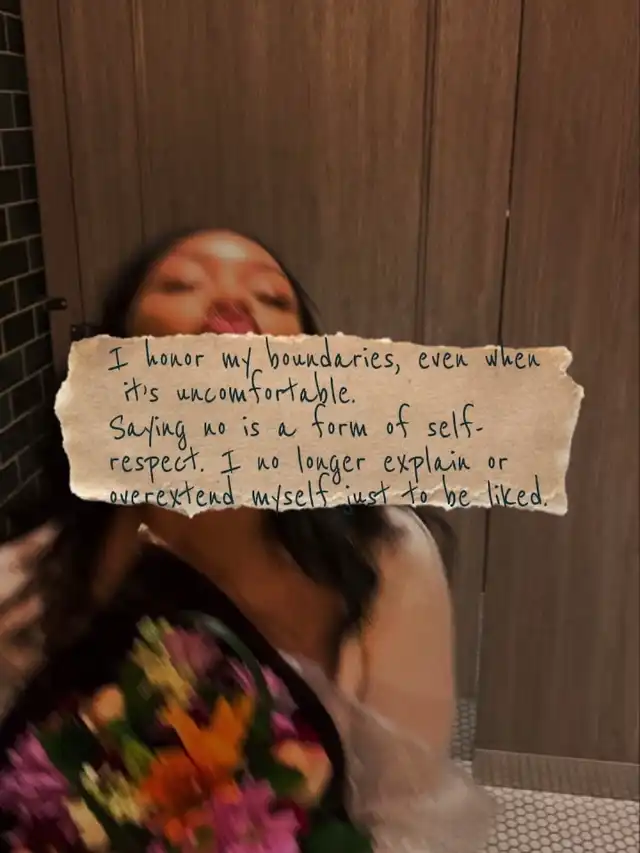 I honor my boundaries, even when
it's uncomfortable.
Saying no is a form of self-
respect. I no longer explain or
overextend myself just to be liked.